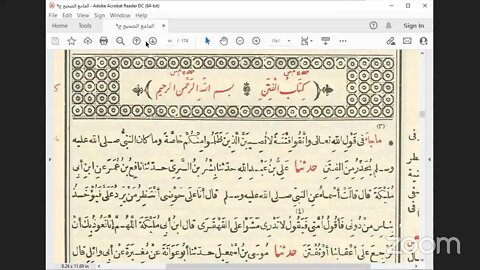 الجامع الصحيح ج٩ - Adobe Acrobat Reader DC (64-bit)
Home Tools الجامع الصحيح ج٩ × Sign In
/ 174
﴿ كتاب الفتن ﴾ ﴿ بسم الله الرحمن الرحيم ﴾
(٣)
* ما جاء في قول الله تعالى واتقوا فتنة لا تصيبن الذين ظلموا منكم خاصة وما كان النبي صلى الله عليه
وسلم يحذر من الفتن حدثنا علي بن عبد الله حدثنا بشر بن السري حدثنا نافع بن عمر عن ابن أبي
مليكة قال قالت أسماء عن النبي صلى الله عليه وسلم قال أنا على حوضي أنتظر من يرد علي فيؤخذ
(٤)
بناس من دوني فأقول أمتي فيقول لا تدري مشوا على القهقرى قال ابن أبي مليكة اللهم إنا نعوذ بك أن
نرجع على أعقابنا أو نفتن حدثنا موسى بن إسمعيل حدثنا أبو عوانة عن مغيرة عن أبي وائل قال
8.26 x 11.69 in
zoom